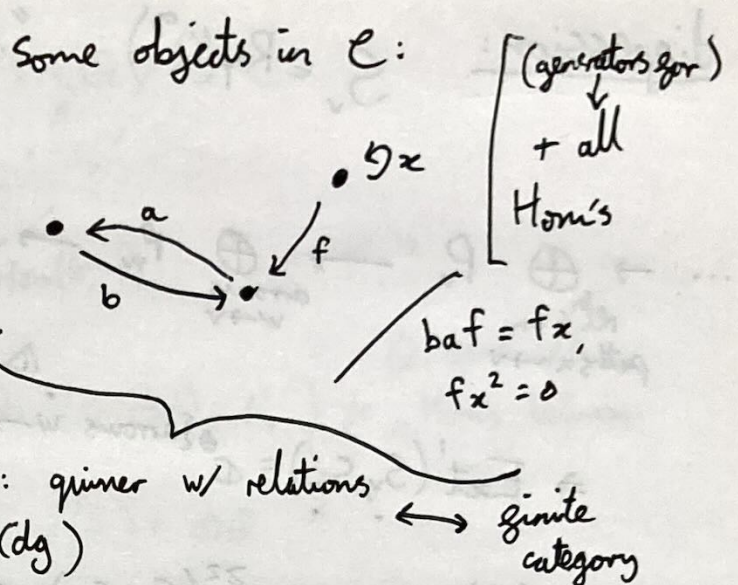 Some objects in C:
(generators for)
↓
+ all
Hom's
x
a
f
b
baf = fx,
fx² = 0
: quiver w/ relations
(dg)
↔ finite
category